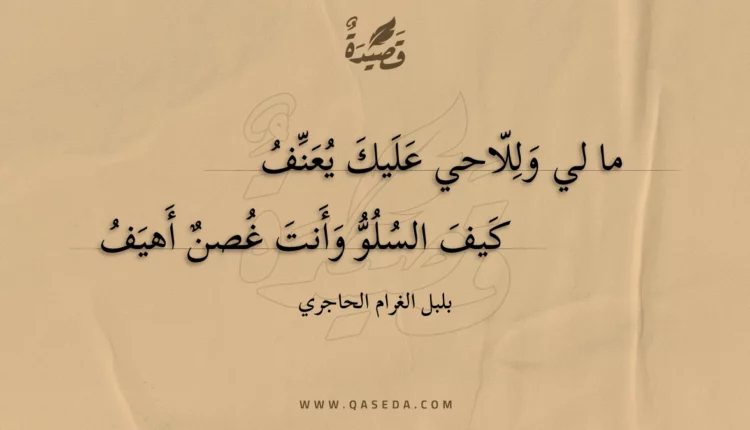 قَصِيْدَةٌ
ما لي وَلِلّاحي عَلَيكَ يُعَنِّفُ
كَيفَ السُلُوُّ وَأَنتَ غُصنٌ أَهيَفُ
بلبل الغرام الحاجري
WWW.QASEDA.COM